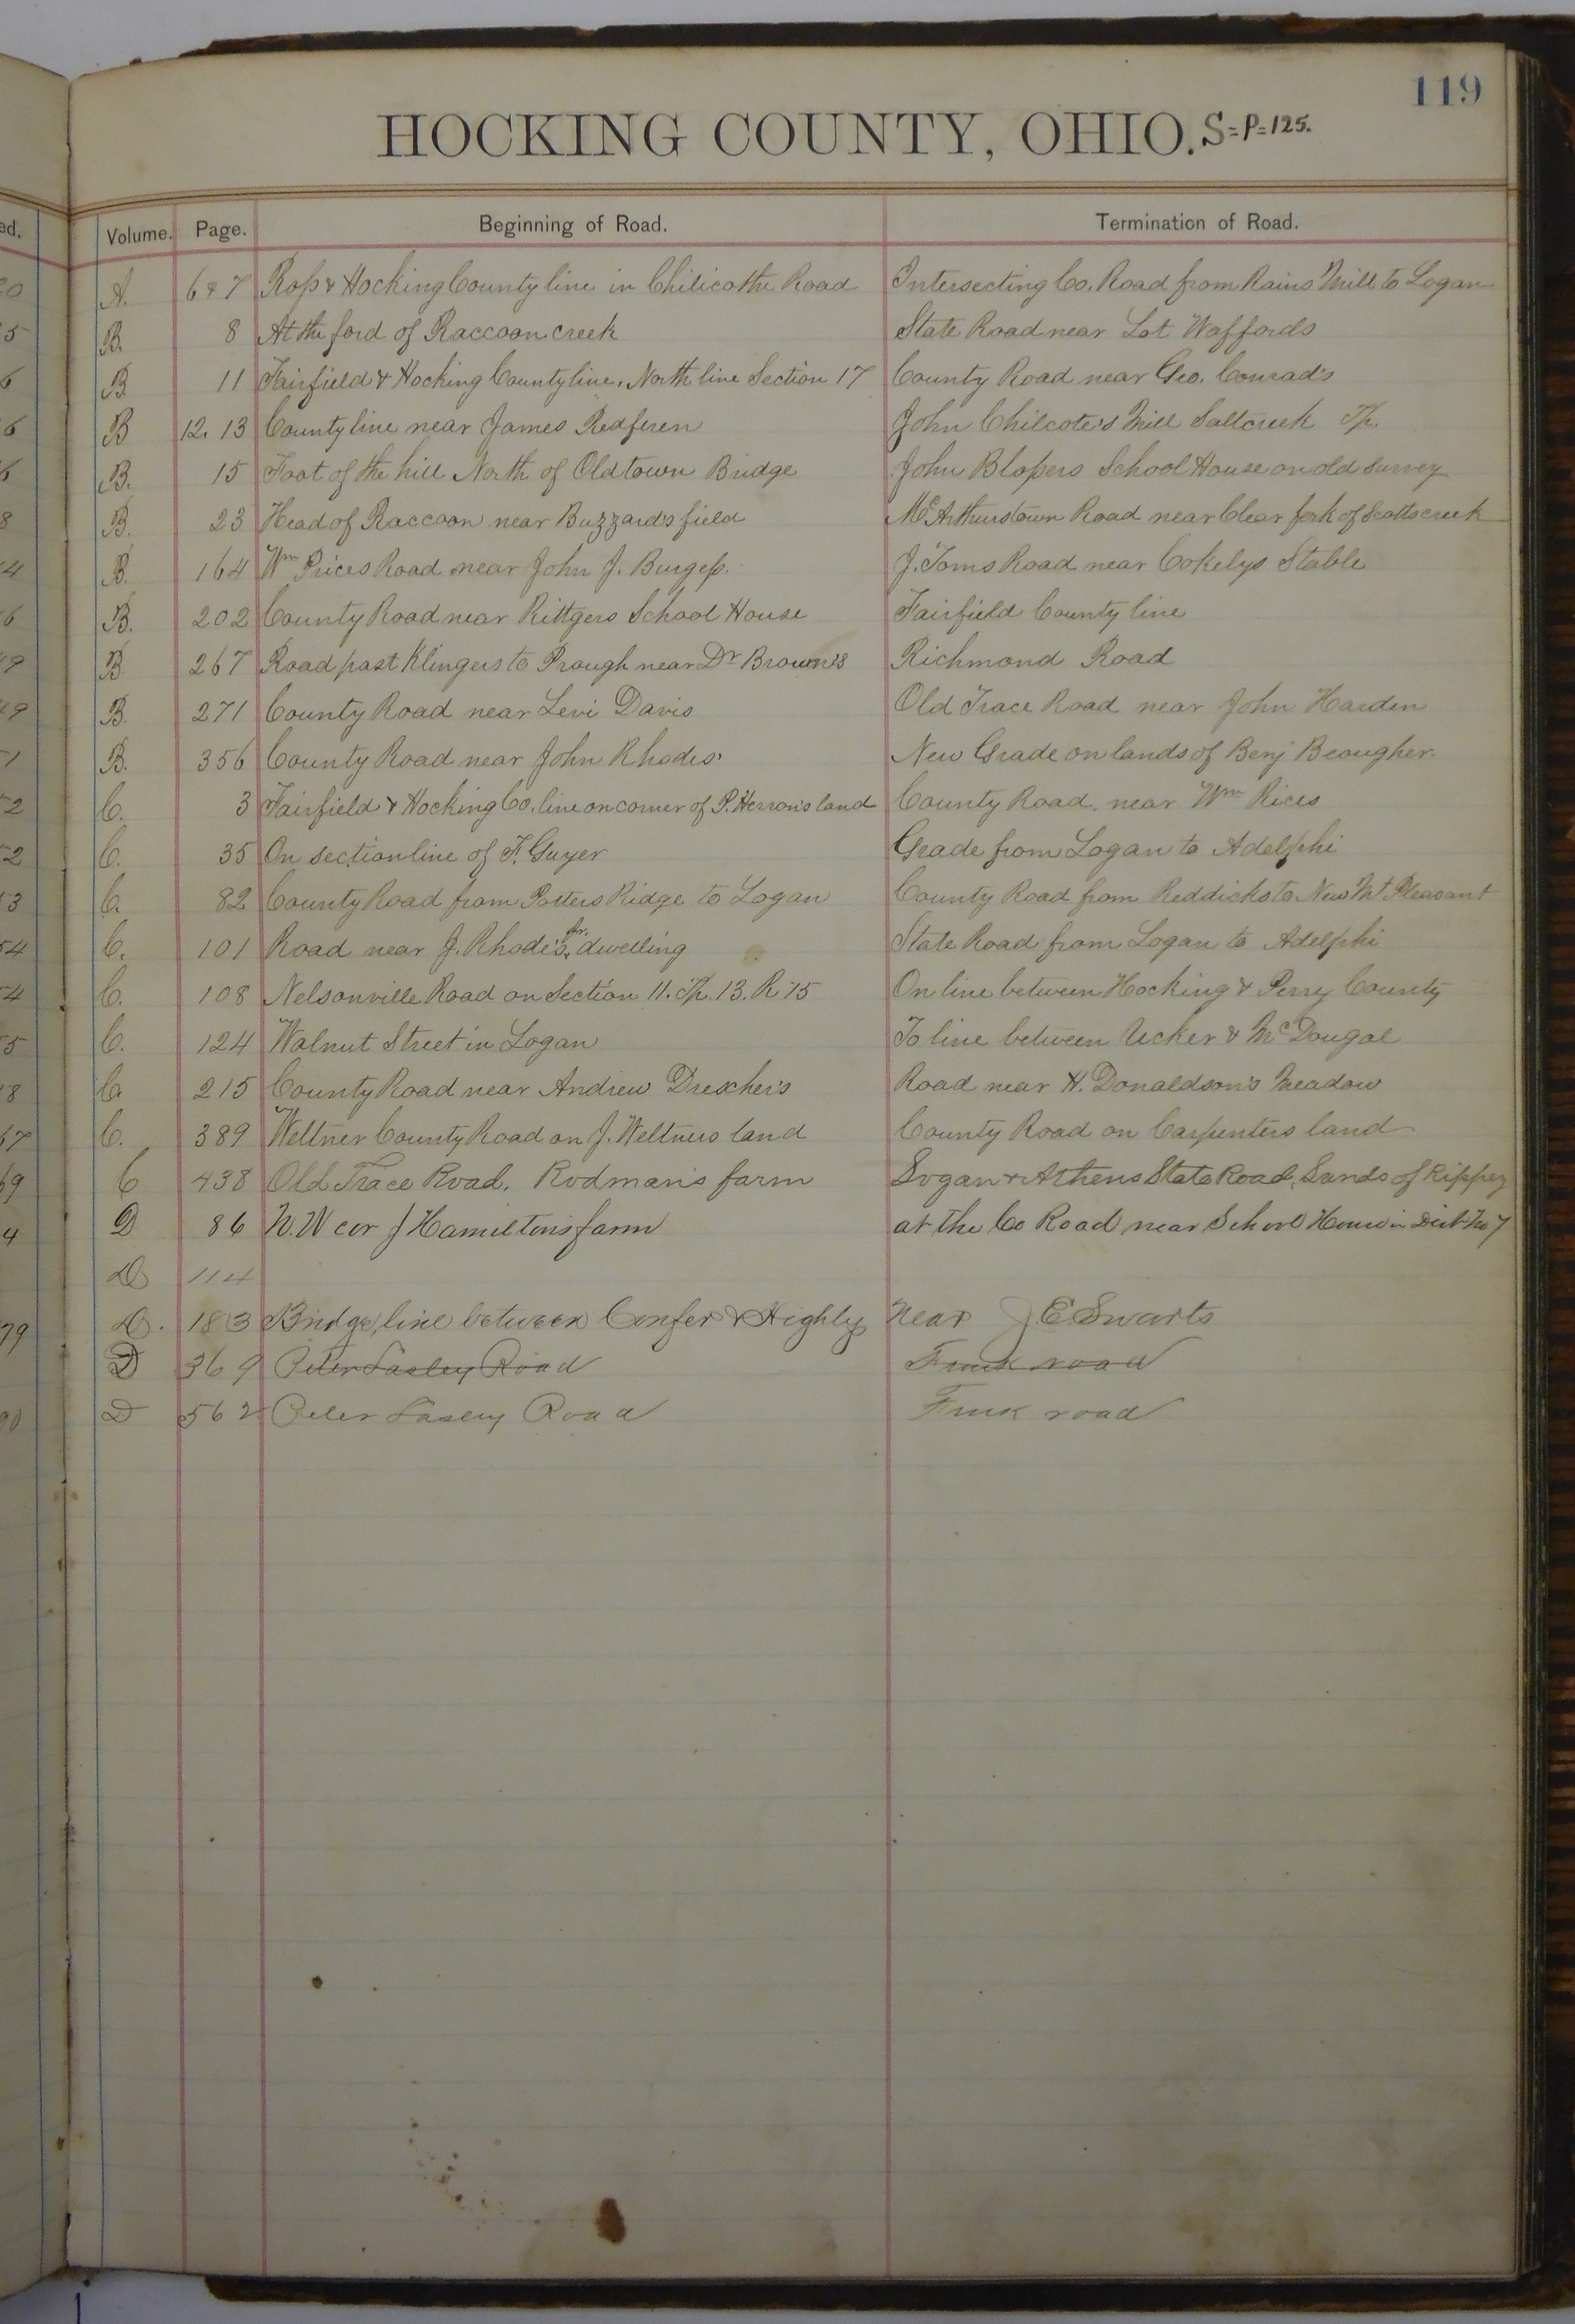 119
HOCKING COUNTY, OHIO. S=P=125.
ed. Volume. Page. Beginning of Road. Termination of Road.
A. 6 & 7 Ross & Hocking County line in Chilicothe Road Intersecting Co. Road from Rains Mill to Logan
B. 8 At the ford of Raccoon creek State Road near Lot Waffords
B 11 Fairfield & Hocking County line, North line Section 17 County Road near Geo. Conrad's
B 12. 13 County line near James Redferen John Chilcote's Mill Saltcreek Tp.
B. 15 Foot of the hill North of Oldtown Bridge John Blossers School House on old survey
B. 23 Head of Raccoon near Buzzard's field McArthurstown Road near Clear fork of Scotts creek
B. 164 Wm Prices Road near John J. Burgess. J. Toms Road near Cokelys Stable
B. 202 County Road near Rittgers School House Fairfield County line
B 267 Road past Klingers to Prough near Dr Brown's Richmond Road
B. 271 County Road near Levi Davis Old Trace Road near John Harden
B. 356 County Road near John Rhodes' New Grade on lands of Benj Beougher.
C. 3 Fairfield & Hocking Co. line on corner of P. Herron's land County Road near Wm Rices
C. 35 On section line of F. Guyer Grade from Logan to Adelphi
C. 82 County Road from Potters Ridge to Logan County Road from Reddicks to New Mt Pleasant
C. 101 Road near J. Rhode's Jr. dwelling State Road from Logan to Adelphi
C. 108 Nelsonville Road on Section 11. Tp. 13. R 15 On line between Hocking & Perry County
C. 124 Walnut Street in Logan To line between Ucker & McDougal
C. 215 County Road near Andrew Drescher's Road near H. Donaldson's Meadow
C. 389 Weltner County Road on J. Weltners land County Road on Carpenters land
C 438 Old Trace Road, Rodman's farm Logan & Athens State Road, Lands of Rippey
D 86 N. W cor J Hamilton's farm at the Co Road near School House in Dist No 7
D 114
D. 183 Bridge, line between Confer & Highly near J. E Swarts
D 369 Peter Lasley Road Funk road
D 562 Peter Lasley Road Funk road